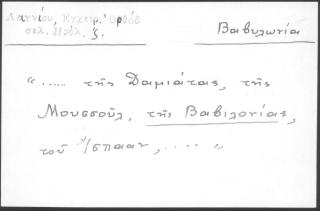 Λατνίου, Εγχειρ. Ὀρθόδ
σελ. Πρόλ. ζ.
Βαβυλωνία
“..... τῆς Δαμιάτας, τῆς
Μουσσούλ, τῆς Βαβιλονίας,
τοῦ Ἰσπαάν, .... „